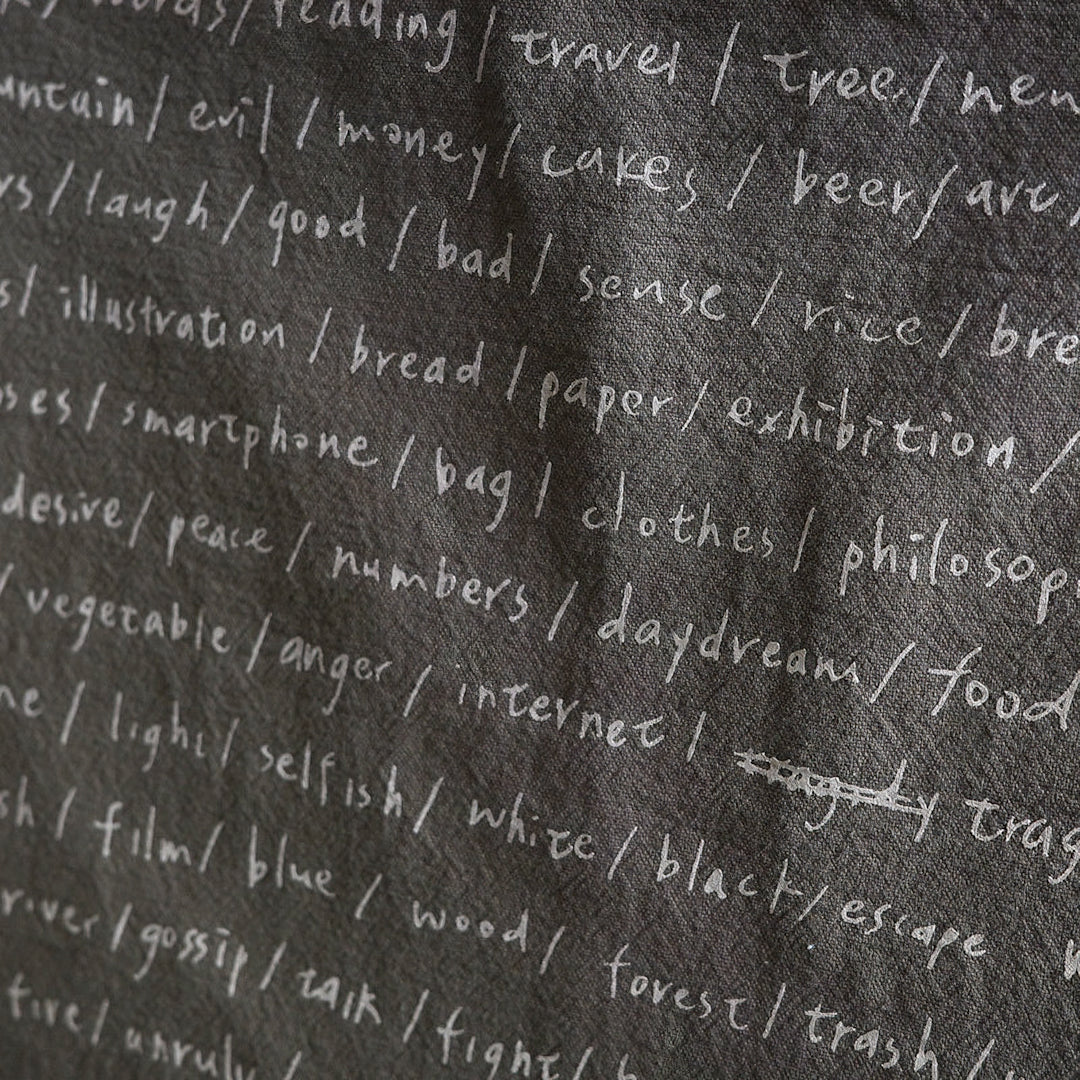 words/reading / travel / tree / new
untain / evil / money / cakes / beer / art /
rs / laugh / good / bad / sense / rice / bre
s / illustration / bread / paper / exhibition /
ses / smartphone / bag / clothes / philosop
desire / peace / numbers / daydream / food
/ vegetable / anger / internet / tragedy trag
ne / light / selfish / white / black / escape
sh / film / blue / wood / forest / trash /
river / gossip / talk / fight /
five / unruly /